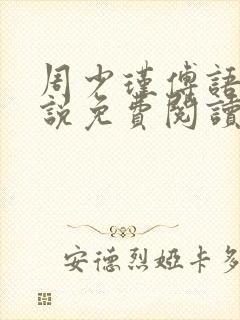 周少瑾傅語
說免費閱讀
安德烈婭卡多